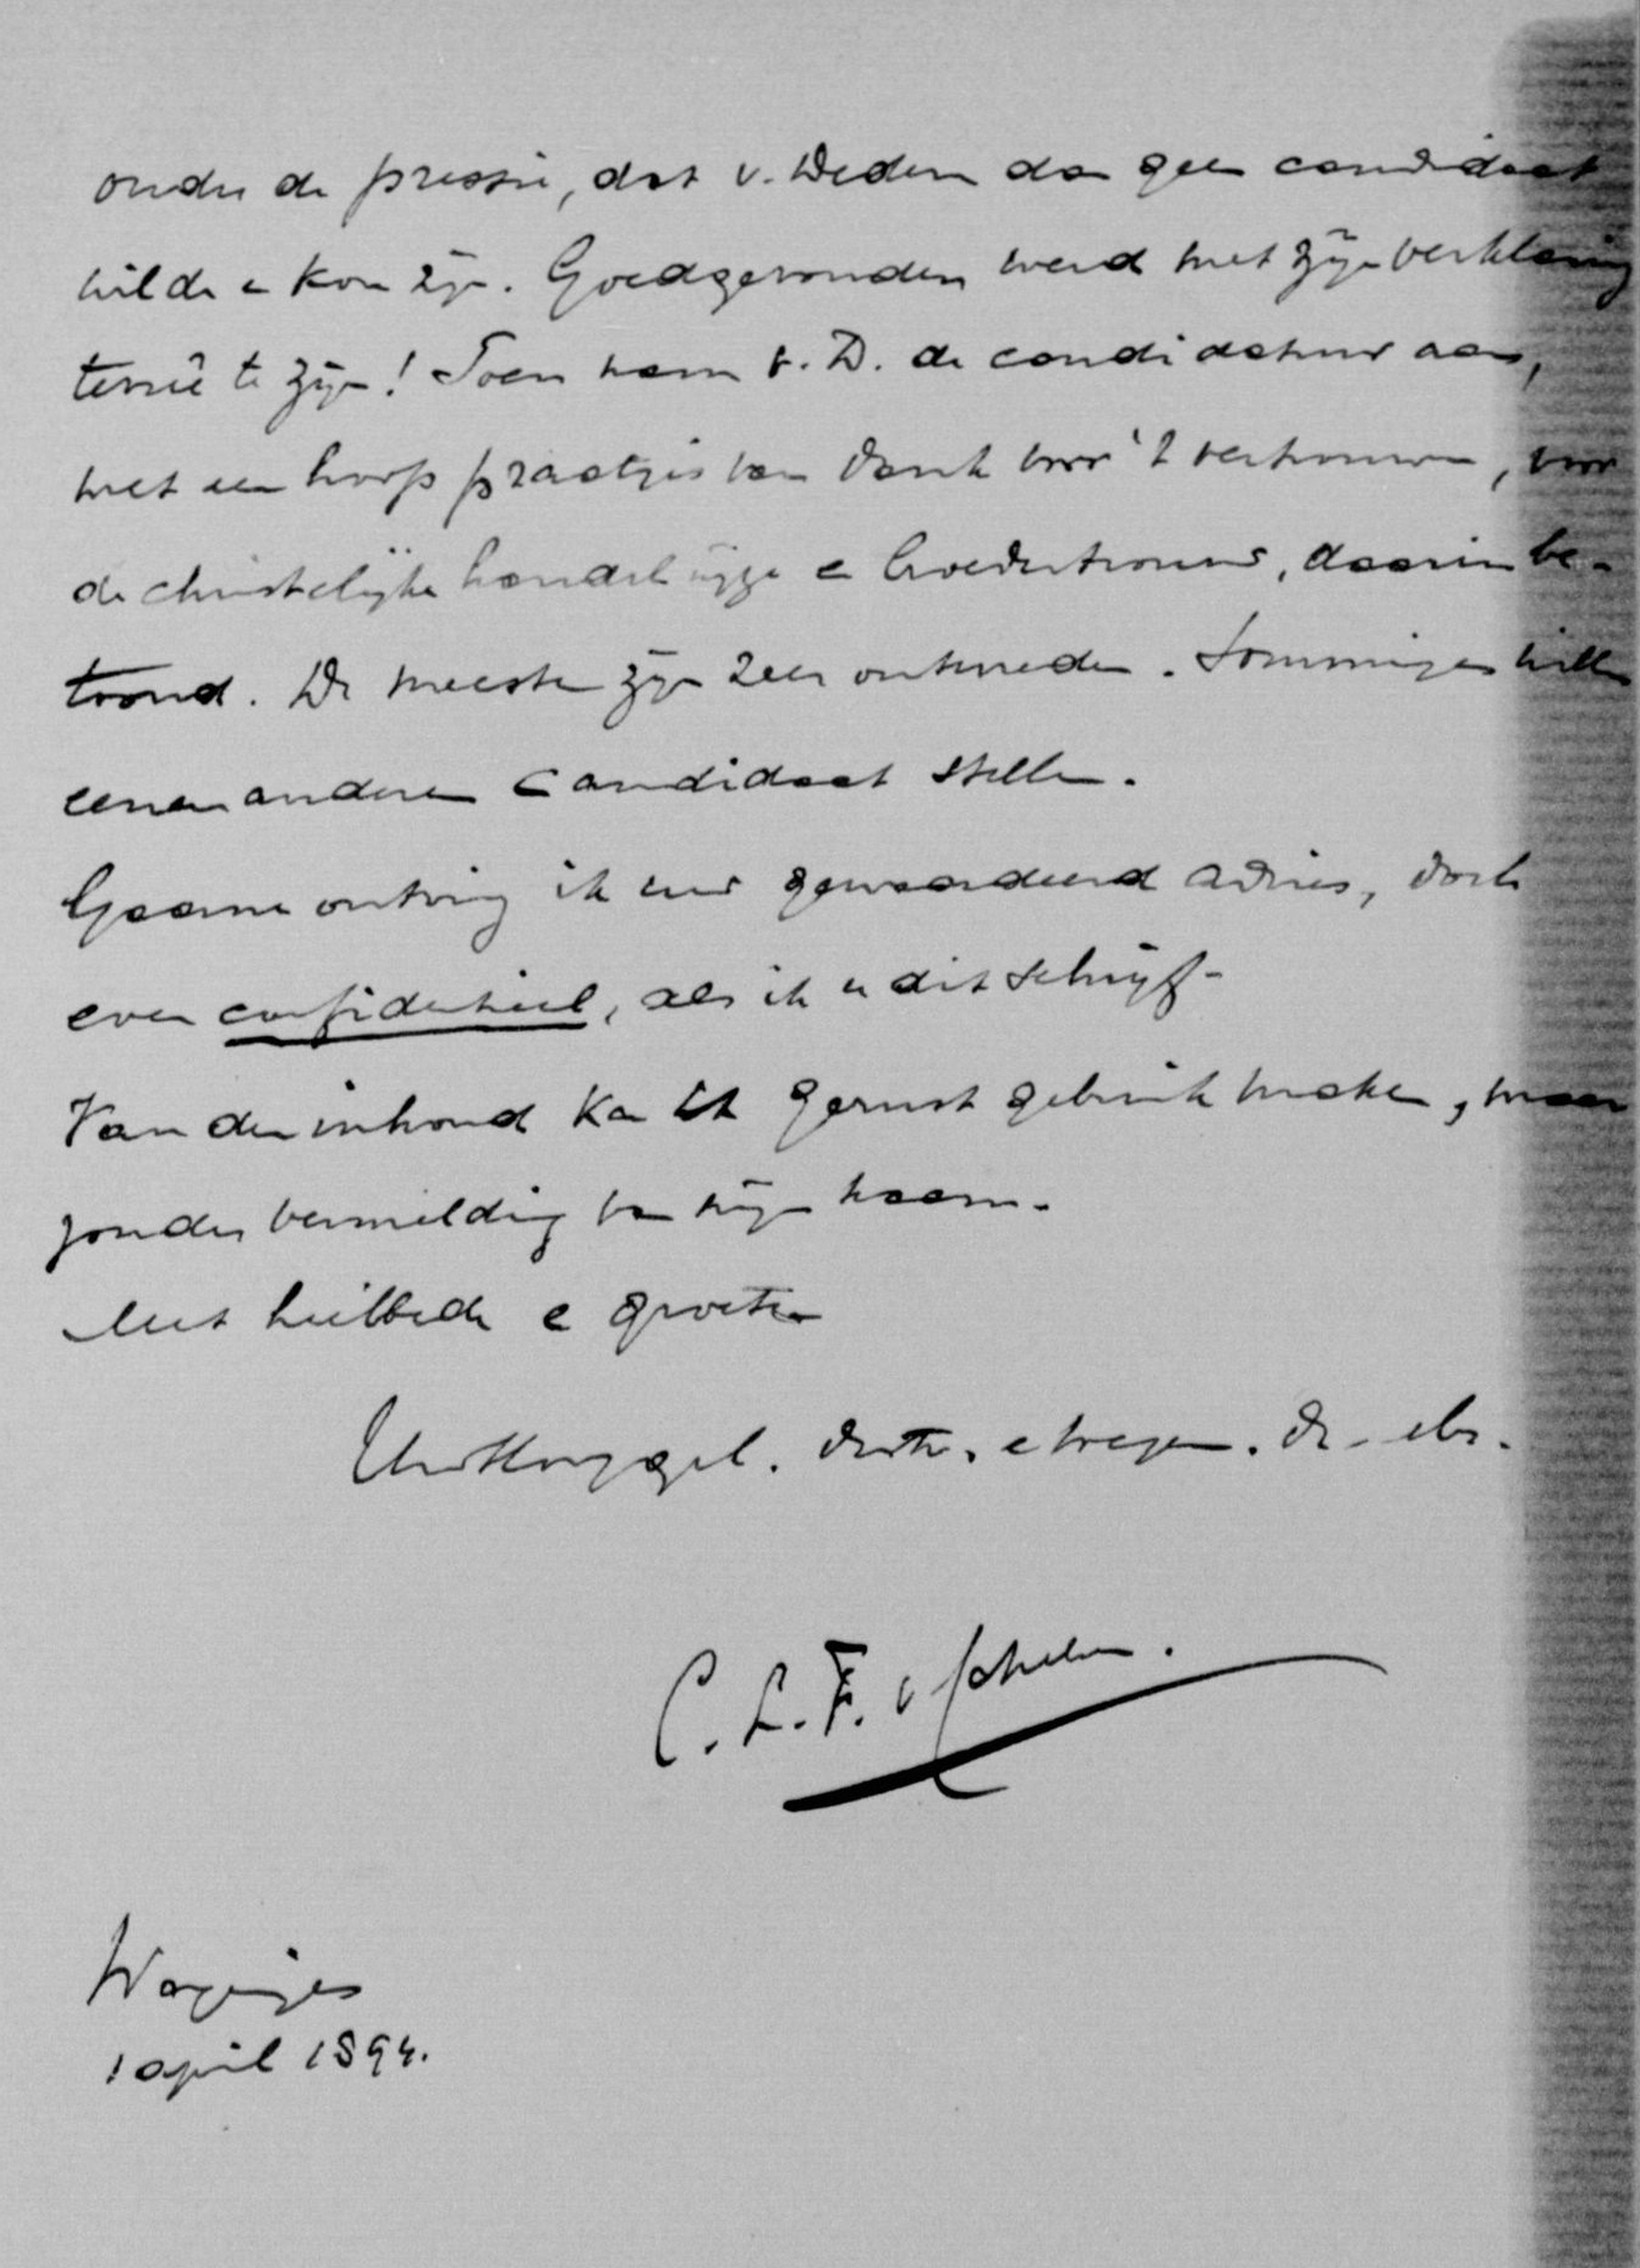 onder de pressie, dat v. Dedem dan geen candidaat
wilde en kon zijn. Goedgevonden werd met zijn verklaring
tevreê te zijn! Toen nam v. D. de candidatuur aan,
met een hoop praatjes van dank voor 't vertrouwen, voor
de christelijke handelwijze en broedertrouw, daarin be-
toond. De meesten zijn zeer ontevreden. Sommigen willen
eenen anderen candidaat stellen.
Gaarne ontving ik uw gewaardeerd advies, doch
even confidentieel, als ik u dit schrijf.
Van den inhoud kan U gerust gebruik maken, maar
zonder vermelding van mijn naam.
Met heilbede en groeten
UwHooggel. dw. dr. en br.
C. L. F. v Schelven.
Wageningen
1 april 1894.